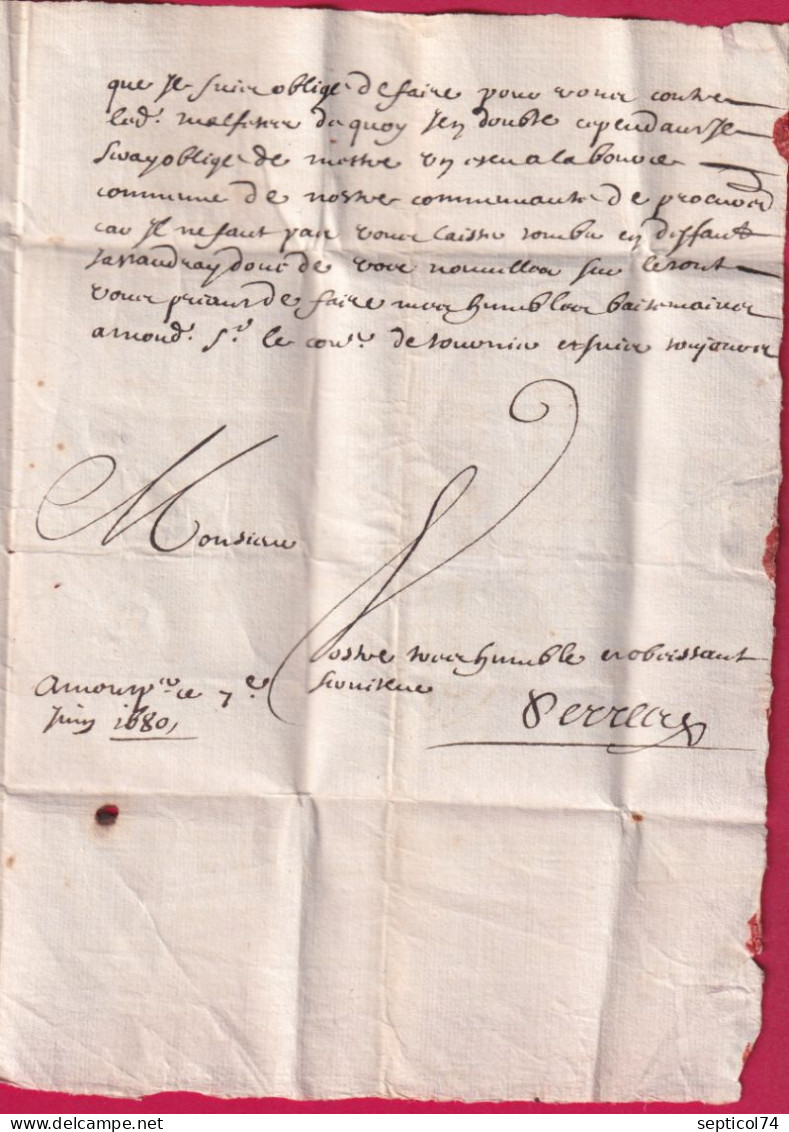 que Je suis oblige de faire pour vous contre
led. de quoy Jen doubte cependant Je
Seray oblige de mettre un escu a la bource
commune de nostre communaute de procureur
car Il ne faut pas vous laisser tomber en deffaut
Jattandray donc de vos nouvelles sur le tout
vous priant de faire mes humbles baisemains
amond. Sr. le con.er de et suis tousjours
Monsieur
Vostre tres humble et obeissant
serviteur
Perrecy
ce 7e
Juin 1680,
septicol74